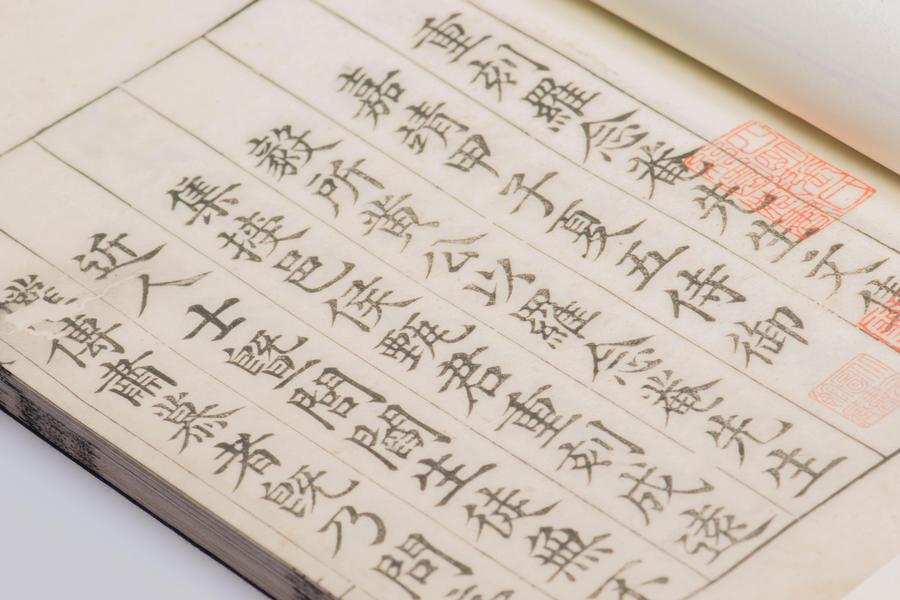 重刻羅念菴先生文集
嘉靖甲子夏五侍御
毅所黄公以羅念菴先生
集授邑侯甄君重刻成遠
近人士暨閭閻生徒無不
傳肅慕者既乃問